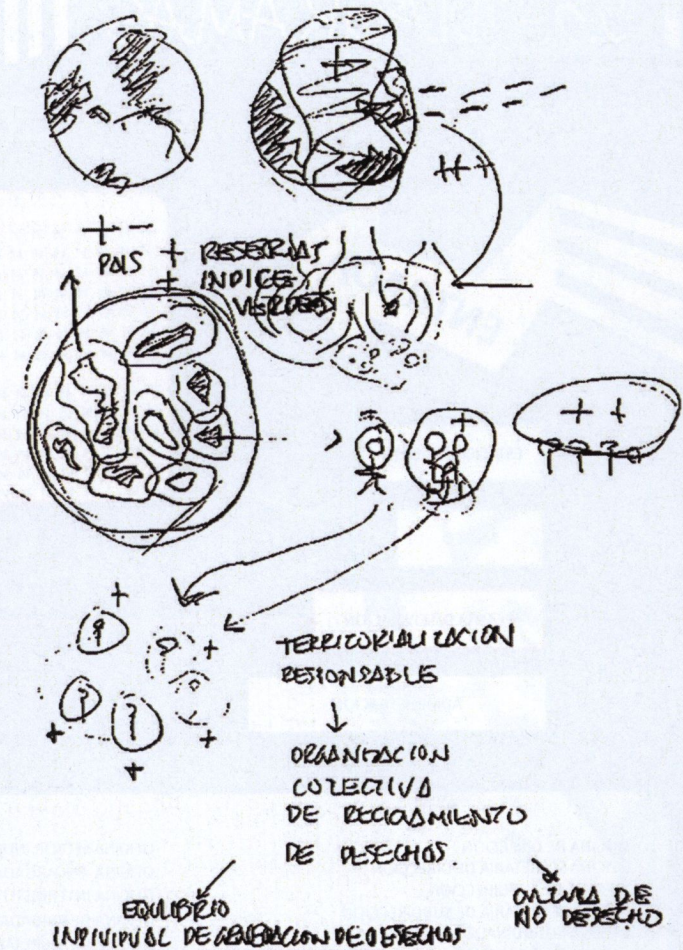 + -
PAIS
+ RESERVAS
+ INDICE
VERDES
TERRITORIALIZACION
RESPONSABLE
ORGANIZACION
COLECTIVA
DE RECICLAMIENTO
DE DESECHOS
EQUILIBRIO
INDIVIDUAL DE GENERACION DE DESECHOS
CULTURA DE
NO DESECHO